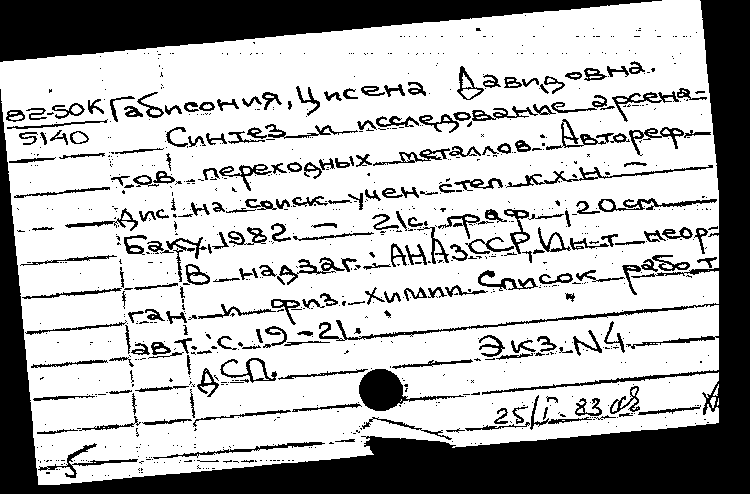 82-50К Габисония, Цисена Давидовна.
5140 Синтез и исследование арсена-
тов переходных металлов: Автореф.
дис. на соиск. учен. степ. к.х.н. —
Баку, 1982. — 21с. граф. ; 20 см
В надзаг.: АНАзССР, Ин-т неор-
ган. и физ. химии. Список работ
авт.: с. 19-21.
Экз. N4.
ДСП.
25/I-83
5